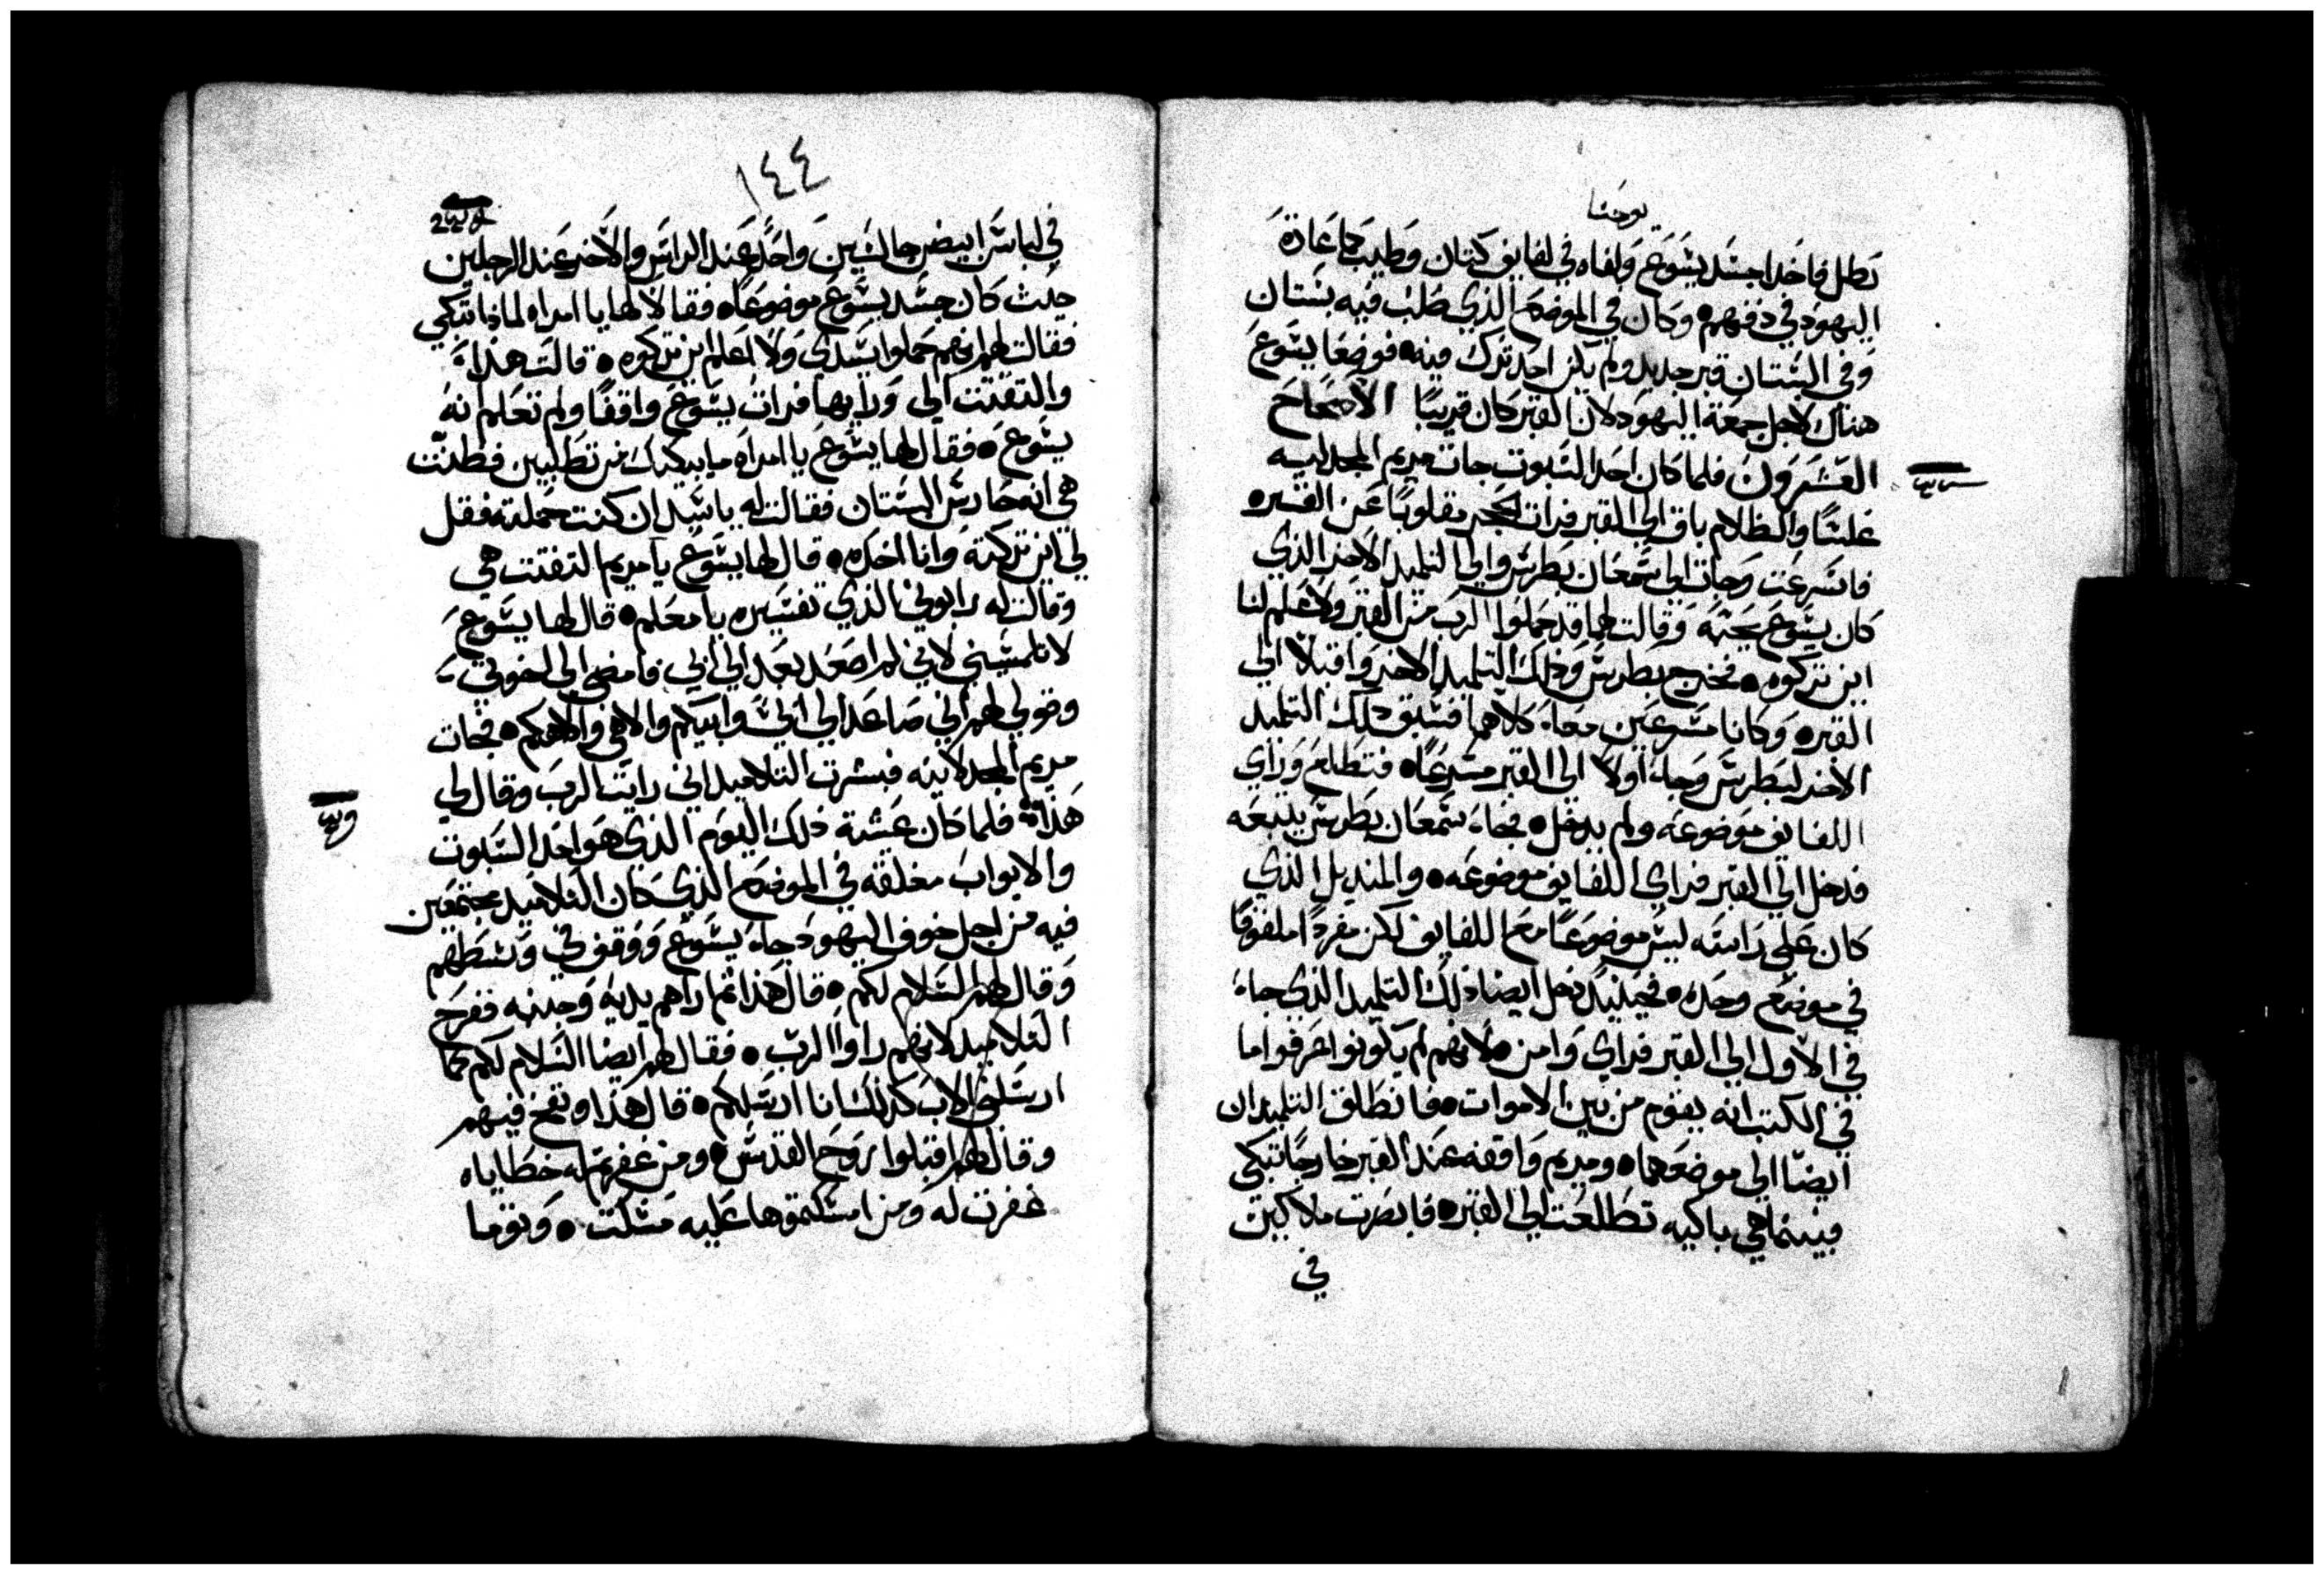 يوحنا
رطل فاخدا جسد يشوع ولفاه في لفايف كتان وطيب كما عادة
اليهود في دفنهم وكان في الموضع الذي صلب فيه بستان
وفي البستان قبر جديد ولم يكن احد ترك فيه فوضعا يشوع
هناك لاجل جمعة اليهود لان القبر كان قريبا الاصحاح
العشرون فلما كان احد السبوت جات مريم المجدليه
غلسا والظلام باق الى القبر فرات الحجر مقلوبا عن القبر
فاسرعت وجات الى سمعان بطرس والى التلميد الاخر الذي
كان يشوع يحبه وقالت لهما قد حملوا الرب من القبر ولا علم لنا
اين تركوه فخرج بطرس وذلك التلميد الاخر واقبلا الى
القبر وكانا مسرعين معا كلاهما فسبق ذلك التلميد
الاخر لبطرس وجا اولا الى القبر مسرعا فتطلع وراي
اللفايف موضوعه ولم يدخل فجا سمعان بطرس يتبعه
فدخل الى القبر فراي اللفايف موضوعه والمنديل الذي
كان على راسه ليس موضوعا مع اللفايف لكن مفردا ملفوفا
في موضع وحده فحينيد دخل ايضا ذلك التلميد الذي جا
في الاول الى القبر فراي وامن لانهم لم يكونوا عرفوا ما
في الكتب انه يقوم من بين الاموات فانطلق التلميدان
ايضا الى موضعهما ومريم واقفه عند القبر خارجا تبكي
فبينما هي باكيه تطلعت الى القبر فابصرت ملاكين
في
١٤٤
في لباس ابيض جالسين واحد عند الراس والاخر عند الرجلين
حيث كان جسد يشوع موضوعا فقالا لها يا امراه لماذا تبكي
فقالت لهم انهم حملوا سيدي ولا اعلم اين تركوه قالت هذا
والتفتت الى ورايها فرات يشوع واقفا ولم تعلم انه
يشوع فقال لها يشوع يا امراه ما يبكيك من تطلبين فظنت
هي انه حارس البستان فقالت له يا سيد ان كنت حملته فقل
لي اين تركته وانا اخده قال لها يشوع يا مريم التفتت هي
وقالت له رابوني الذي تفسيره يا معلم قال لها يشوع
لا تلمسيني لاني لم اصعد بعد الى ابي فامضي الى اخوتي
وقولي لهم اني صاعد الى ابي وابيكم والاهي والاهكم فجات
مريم المجدلانيه فبشرت التلاميد اني رايت الرب وقال لي
هذا فلما كان عشية ذلك اليوم الذي هو احد السبوت
والابواب مغلقه في الموضع الذي كان التلاميد مجتمعين
فيه من اجل خوف اليهود جا يشوع ووقف في وسطهم
وقال لهم السلام لكم قال هذا ثم اراهم يديه وجنبه ففرح
التلاميد لانهم راوا الرب فقال لهم ايضا السلام لكم كما
ارسلني الاب كذلك انا ارسلكم قال هذا ونفخ فيهم
وقال لهم اقبلوا روح القدس ومن غفرتم له خطاياه
غفرت له ومن امسكتموها عليه مسكت وتوما